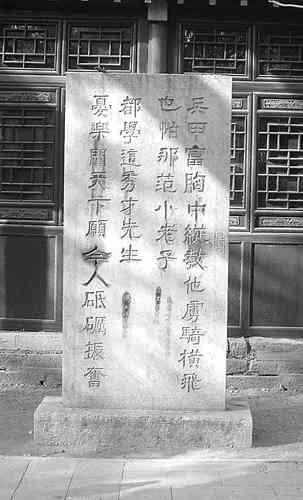 兵甲富胸中縱教他虜騎橫飛
也怕那范小老子
憂樂關天下願今人砥礪振奮
都學這秀才先生